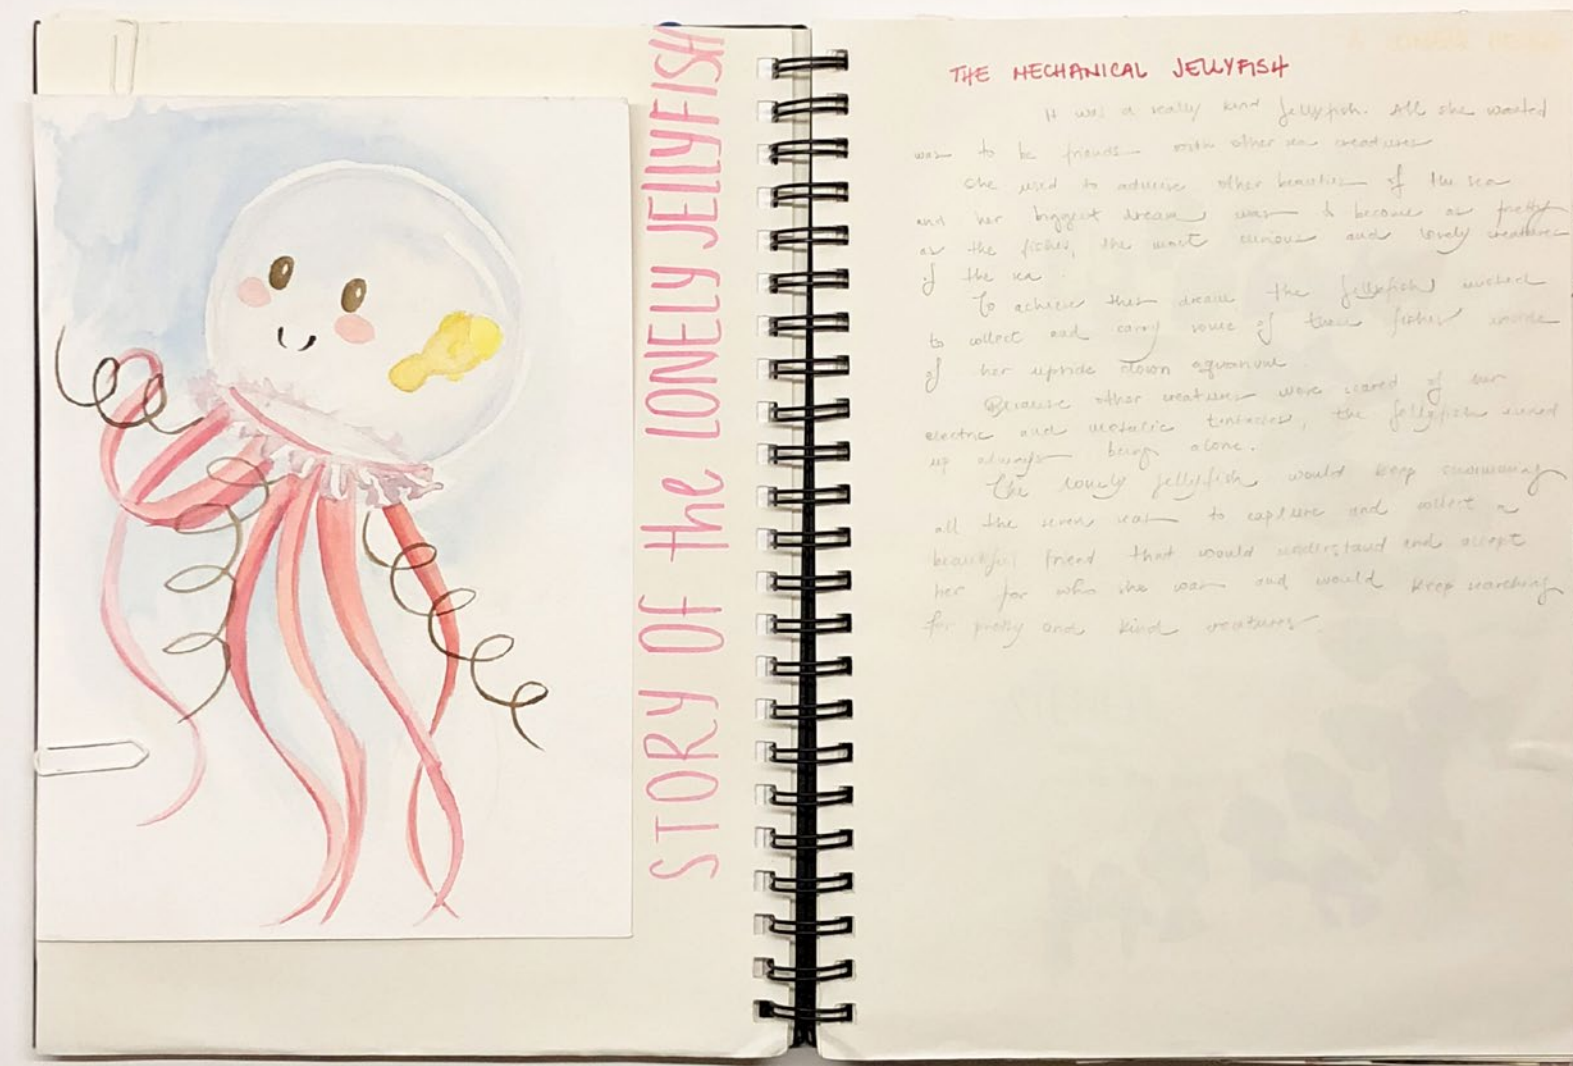 STORY OF the LONELY JELLYFISH
THE MECHANICAL JELLYFISH
It was a really kind jellyfish. All she wanted
was to be friends with other sea creatures
She used to admire other beauties of the sea
and her biggest dream was to become as pretty
as the fishes, the most curious and lovely creatures
of the sea.
To achieve this dream the jellyfish wished
to collect and carry some of these fishes inside
of her upside down aquarium.
Because other creatures were scared of her
electric and metalic tentacles, the jellyfish ended
up always being alone.
The lonely jellyfish would keep swimming
all the seven seas to capture and collect a
beautiful friend that would understand and accept
her for who she was and would keep searching
for pretty and kind creatures.